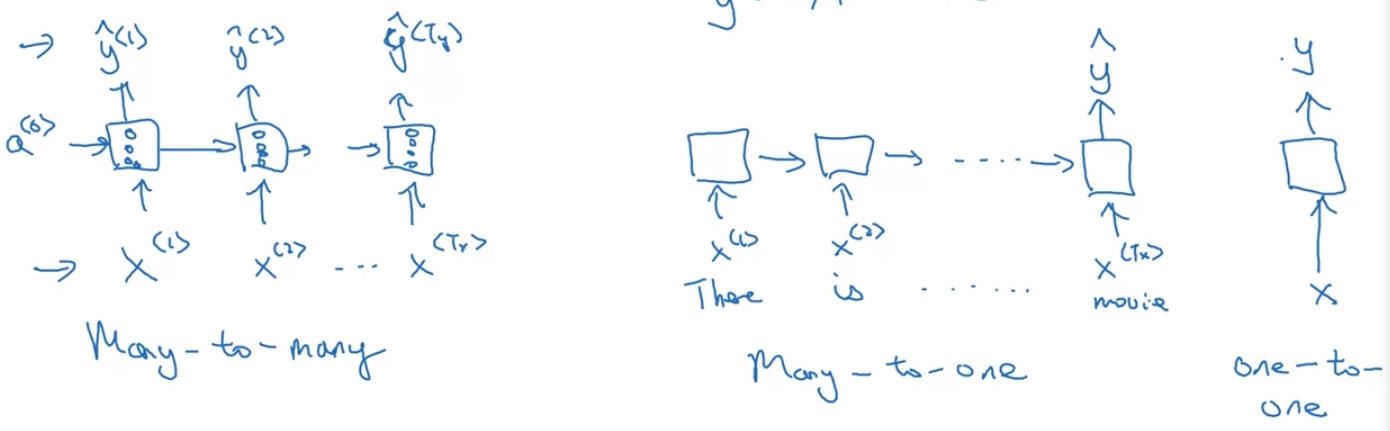 → ŷ<1> ŷ<2> ŷ<Ty>
a<0>
→ x<1> x<2> ... x<Tx>
Many-to-many
y
ŷ
x<1> x<2> ..... x<Tx>
There is ...... movie
Many-to-one
y
x
one-to-
one